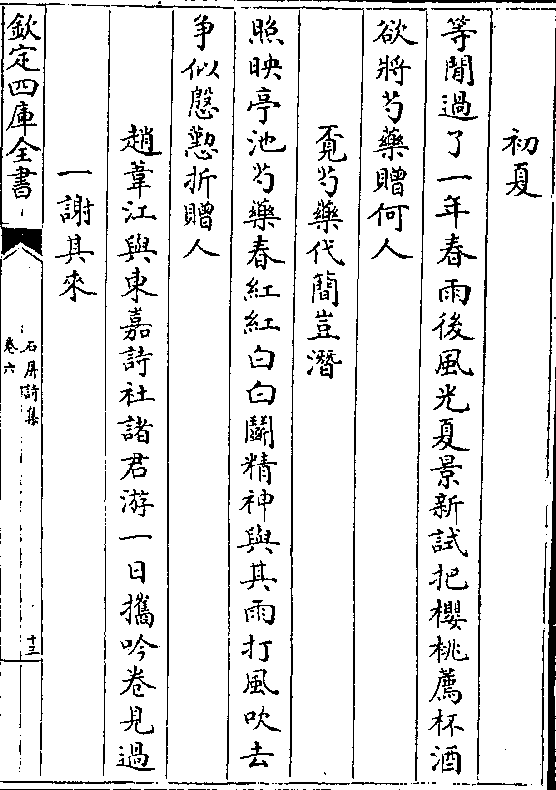 初夏
等閒過了一年春雨後風光夏景新試把櫻桃薦杯酒
欲將芍藥贈何人
覔芍藥代簡豈潛
照映亭池芍藥春紅紅白白鬬精神與其雨打風吹去
爭似慇懃折贈人
趙葦江與東嘉詩社諸君游一日攜吟卷見過
一謝其來
欽定四庫全書
石屏詩集
卷六
十三